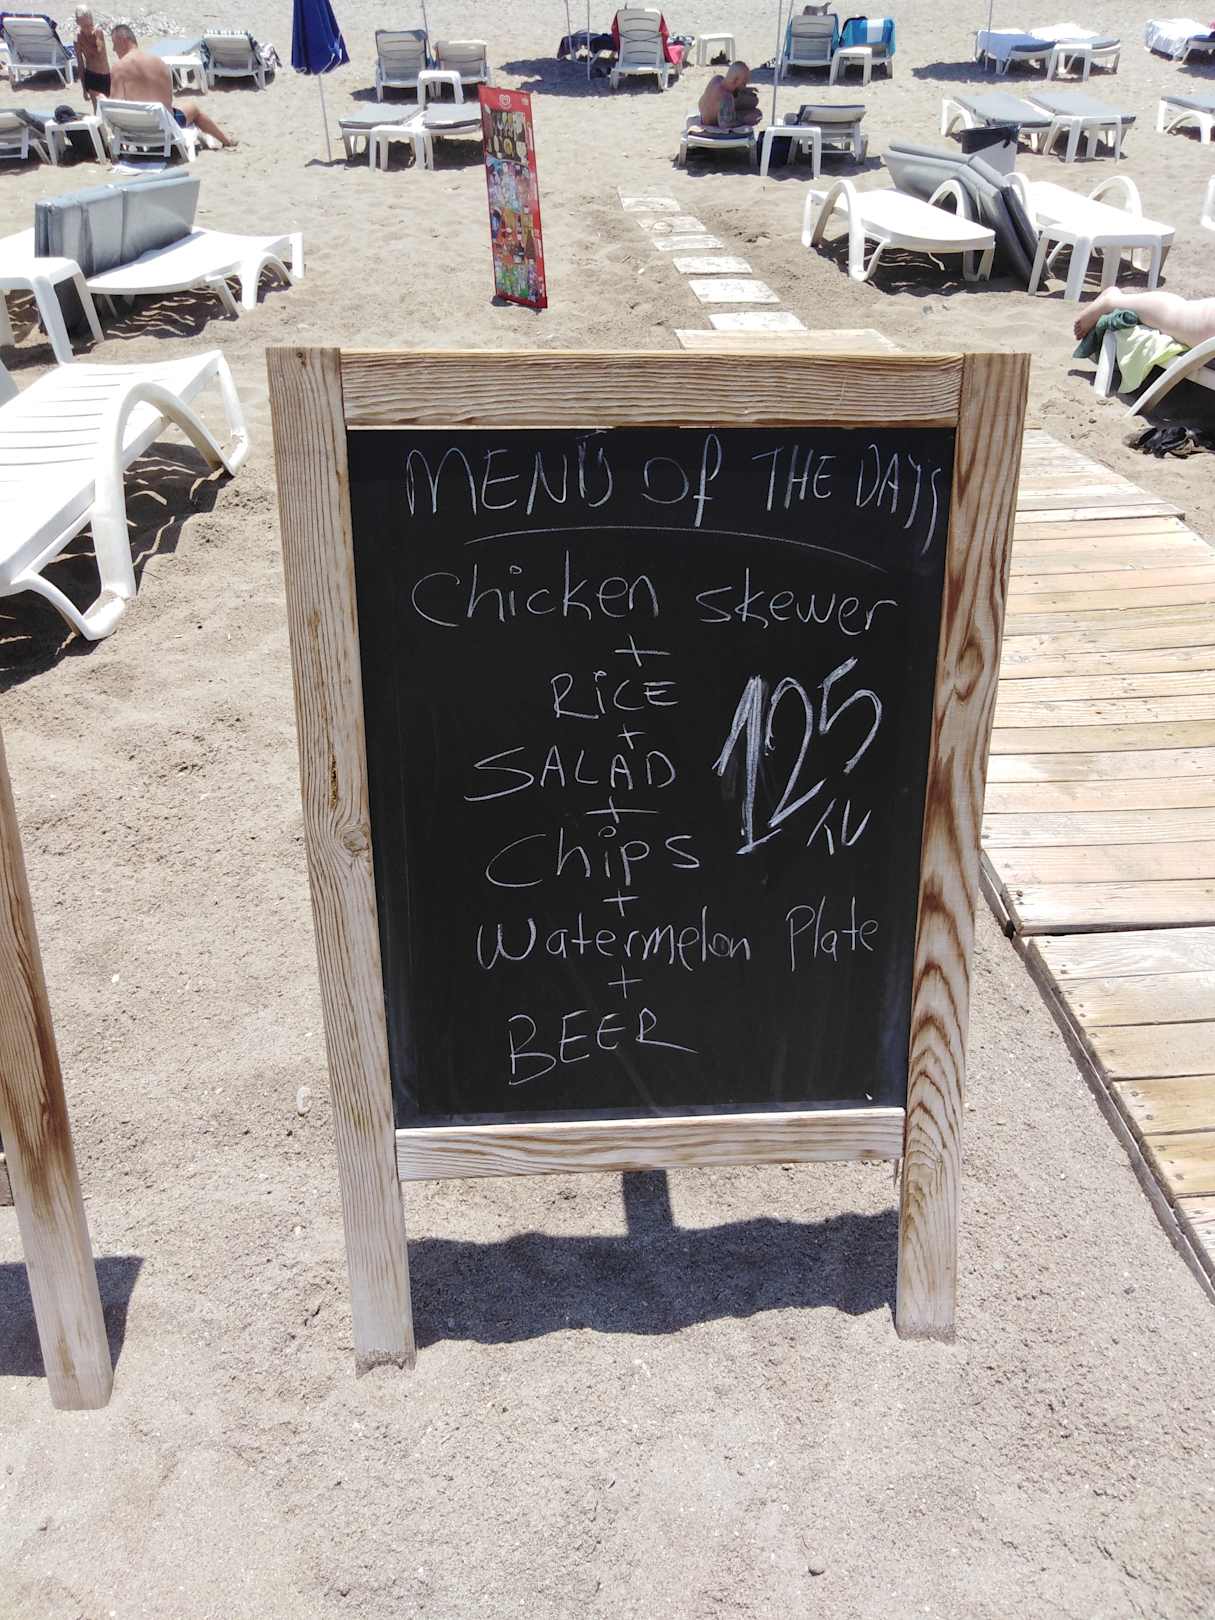 MENÜ Of THE DAYS
Chicken skewer
+
RiCE
+
SALAD
125
+
Chips
+
Watermelon Plate
+
BEER